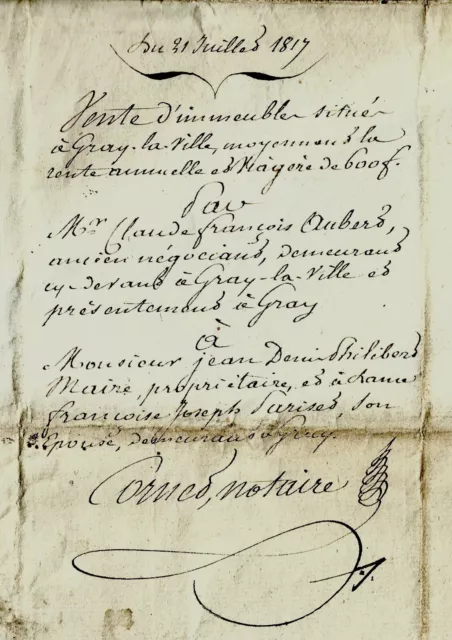 Du 21 Juillet 1817
Vente d'immeubles situés
à Gray-la-Ville, moyennant la
rente annuelle et viagère de 600 f.
Par
Mr. Claude françois Aubert,
ancien négociant, demeurant
cy-devant à Gray-la-Ville et
présentement à Gray
à
Monsieur jean Denis Philibert
Maire, propriétaire, et à dame
françoise Joseph Pariset, son
Epouse, demeurant à Gray.
Cornet, notaire